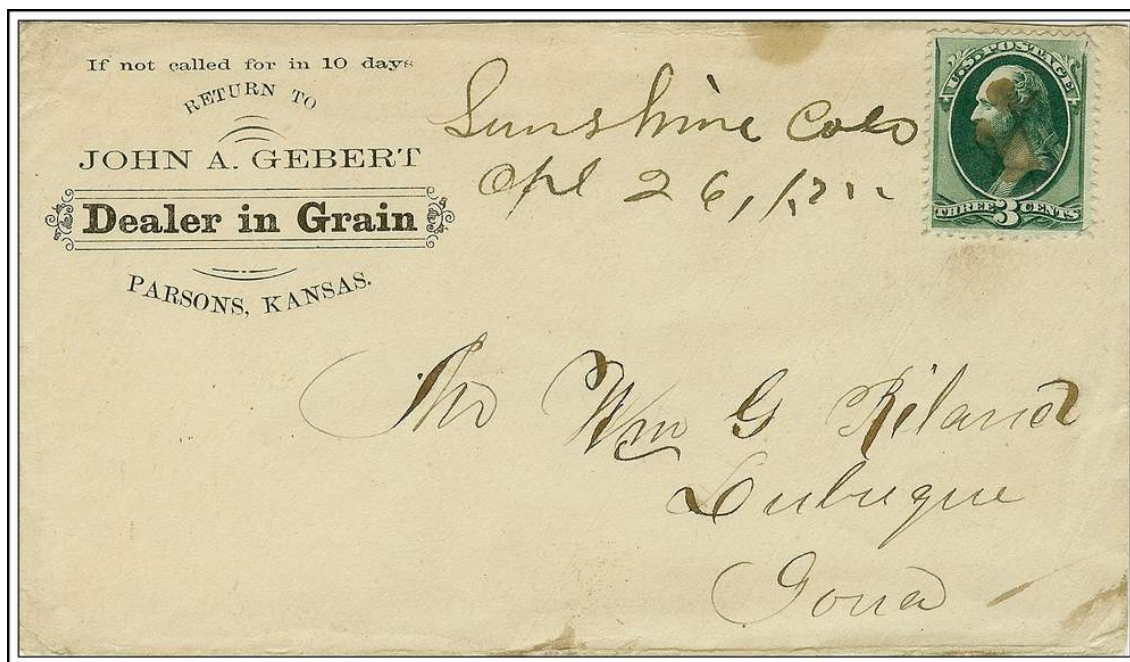 If not called for in 10 days
RETURN TO
JOHN A. GEBERT
Dealer in Grain
PARSONS, KANSAS.
Sunshine Colo
Apl 26,
U.S. POSTAGE
THREE 3 CENTS
Wm G Riland
Dubuque
Iowa